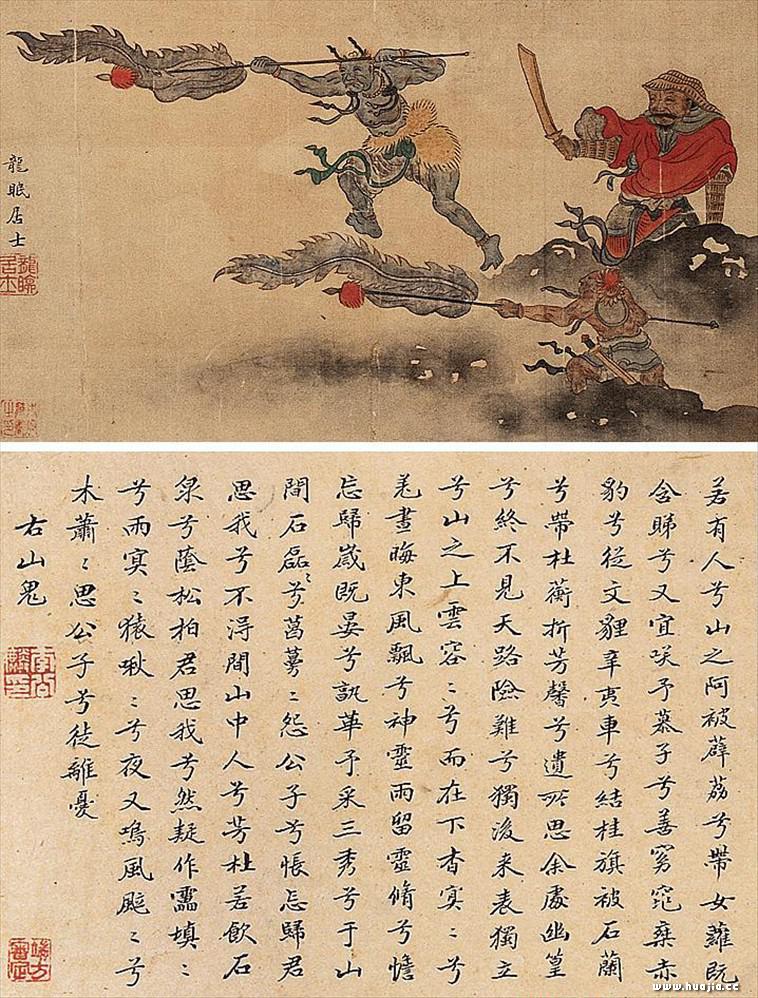 龍眠居士
若有人兮山之阿被薜荔兮帶女蘿既
含睇兮又宜咲予慕子兮善窈窕椉赤
豹兮從文貍辛夷車兮結桂旗被石蘭
兮帶杜蘅折芳馨兮遺所思余處幽篁
兮終不見天路險難兮獨後来表獨立
兮山之上雲容〻兮而在下杳冥〻兮
羌晝晦東風飄兮神靈雨留靈脩兮憺
忘歸歲既晏兮孰華予采三秀兮于山
間石磊〻兮葛蔓〻怨公子兮悵忘歸君
思我兮不淂閒山中人兮芳杜若飲石
泉兮蔭松柏君思我兮然疑作靁填〻
兮雨冥〻猿啾〻兮夜又鳴風颯〻兮
木蕭〻思公子兮徒離憂
右山鬼
端方審定
www.huajia.cc